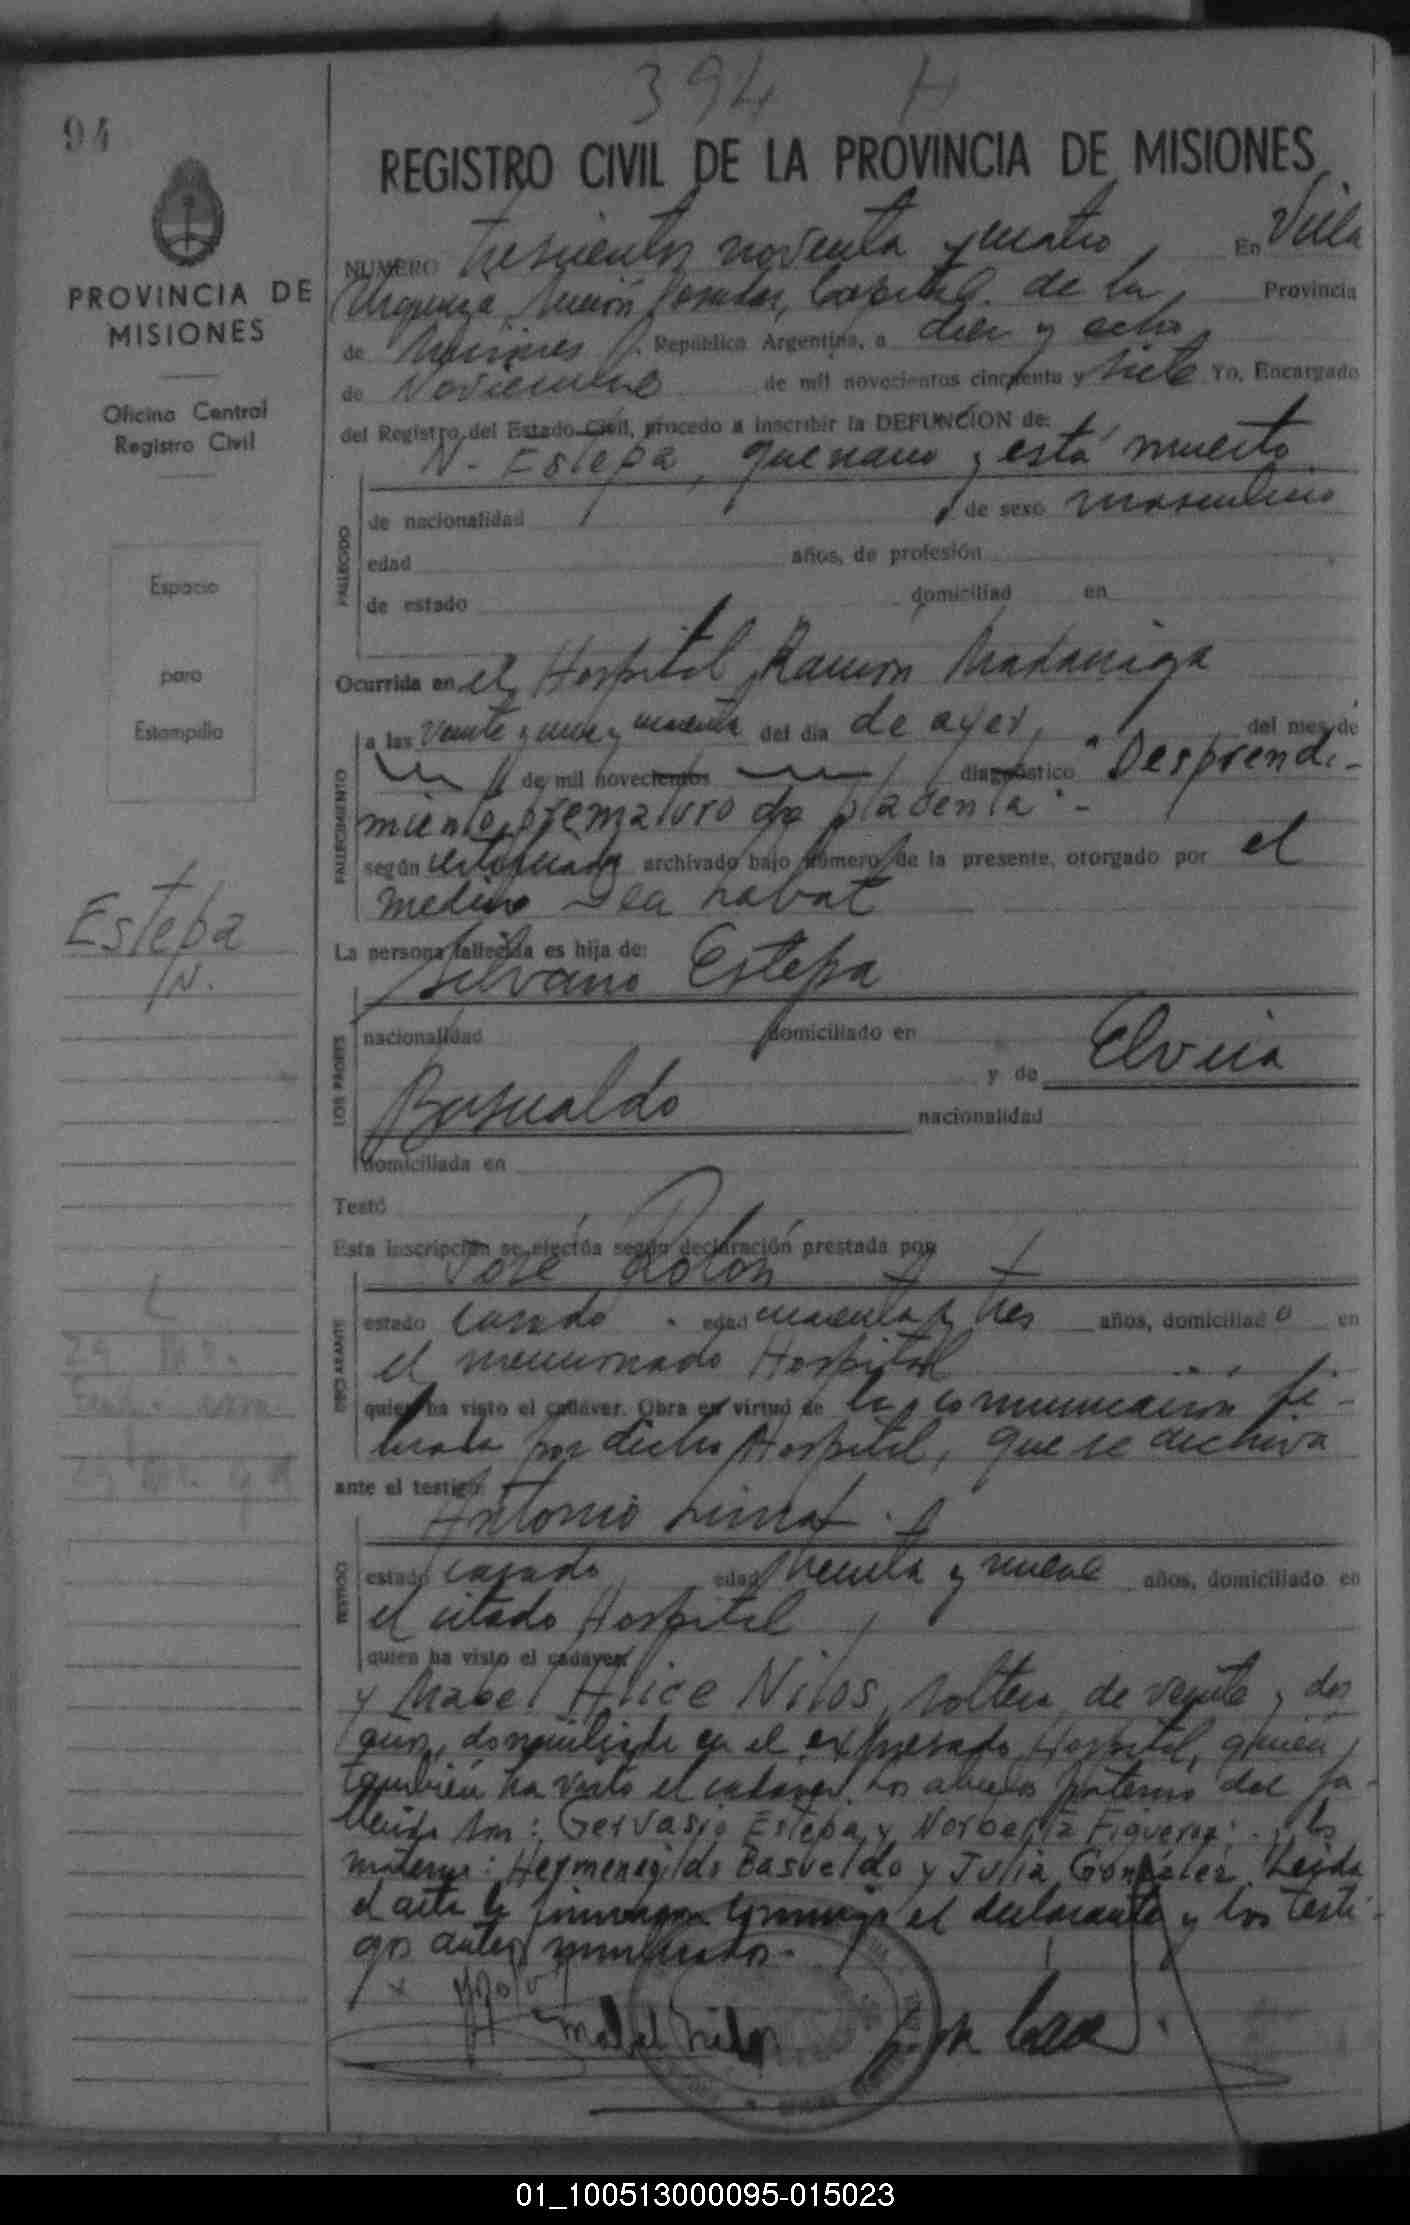 394 H
94
REGISTRO CIVIL DE LA PROVINCIA DE MISIONES
PROVINCIA DE
MISIONES
Oficina Central
Registro Civil
Espacio
para
Estampilla
Estepa
N.
NUMERO Trescientos noventa y cuatro En Villa
Urquiza, Sección Posadas, Capital de la Provincia
de Misiones, República Argentina, a diez y ocho
de Noviembre de mil novecientos cincuenta y siete Yo, Encargado
del Registro del Estado Civil, procedo a inscribir la DEFUNCION de:
N. Estepa, que nació y está muerto
FALLECIDO
de nacionalidad de sexo masculino
edad años, de profesión
de estado domiciliad en
Ocurrida en el Hospital Ramón Madariaga
FALLECIMIENTO
a las veinte y nueve y cuarenta del día de ayer, del mes de
de mil novecientos diagnóstico "Desprendi-
miento prematuro de placenta".-
según certificado archivado bajo número de la presente, otorgado por el
médico Lea Labat
La persona fallecida es hija de:
Silvano Estepa
LOS PADRES
nacionalidad domiciliado en
y de Elvira
Basualdo nacionalidad
domiciliada en
Testó
Esta inscripción se efectúa según declaración prestada por
José Rolón
DECLARANTE
estado casado edad cuarenta y tres años, domiciliado en
el mencionado Hospital
quien ha visto el cadáver. Obra en virtud de la comunicación fi-
brada por dicho Hospital, que se archiva
ante el testigo:
Antonio
TESTIGO
estado casado edad treinta y nueve años, domiciliado en
el citado Hospital
quien ha visto el cadáver
y Mabel Alice Nilos, soltera, de veinte y dos
años, domiciliada en el expresado Hospital, quien
también ha visto el cadáver. Los abuelos paternos del fa-
llecido son: Gervasio Estepa y Norberta Figueroa; los
maternos: Hermenegildo Basualdo y Julia González. Leída
el acta la firmaron conmigo el declarante y los testi-
gos antes mencionados.-
Mabel Nilos
01_100513000095-015023